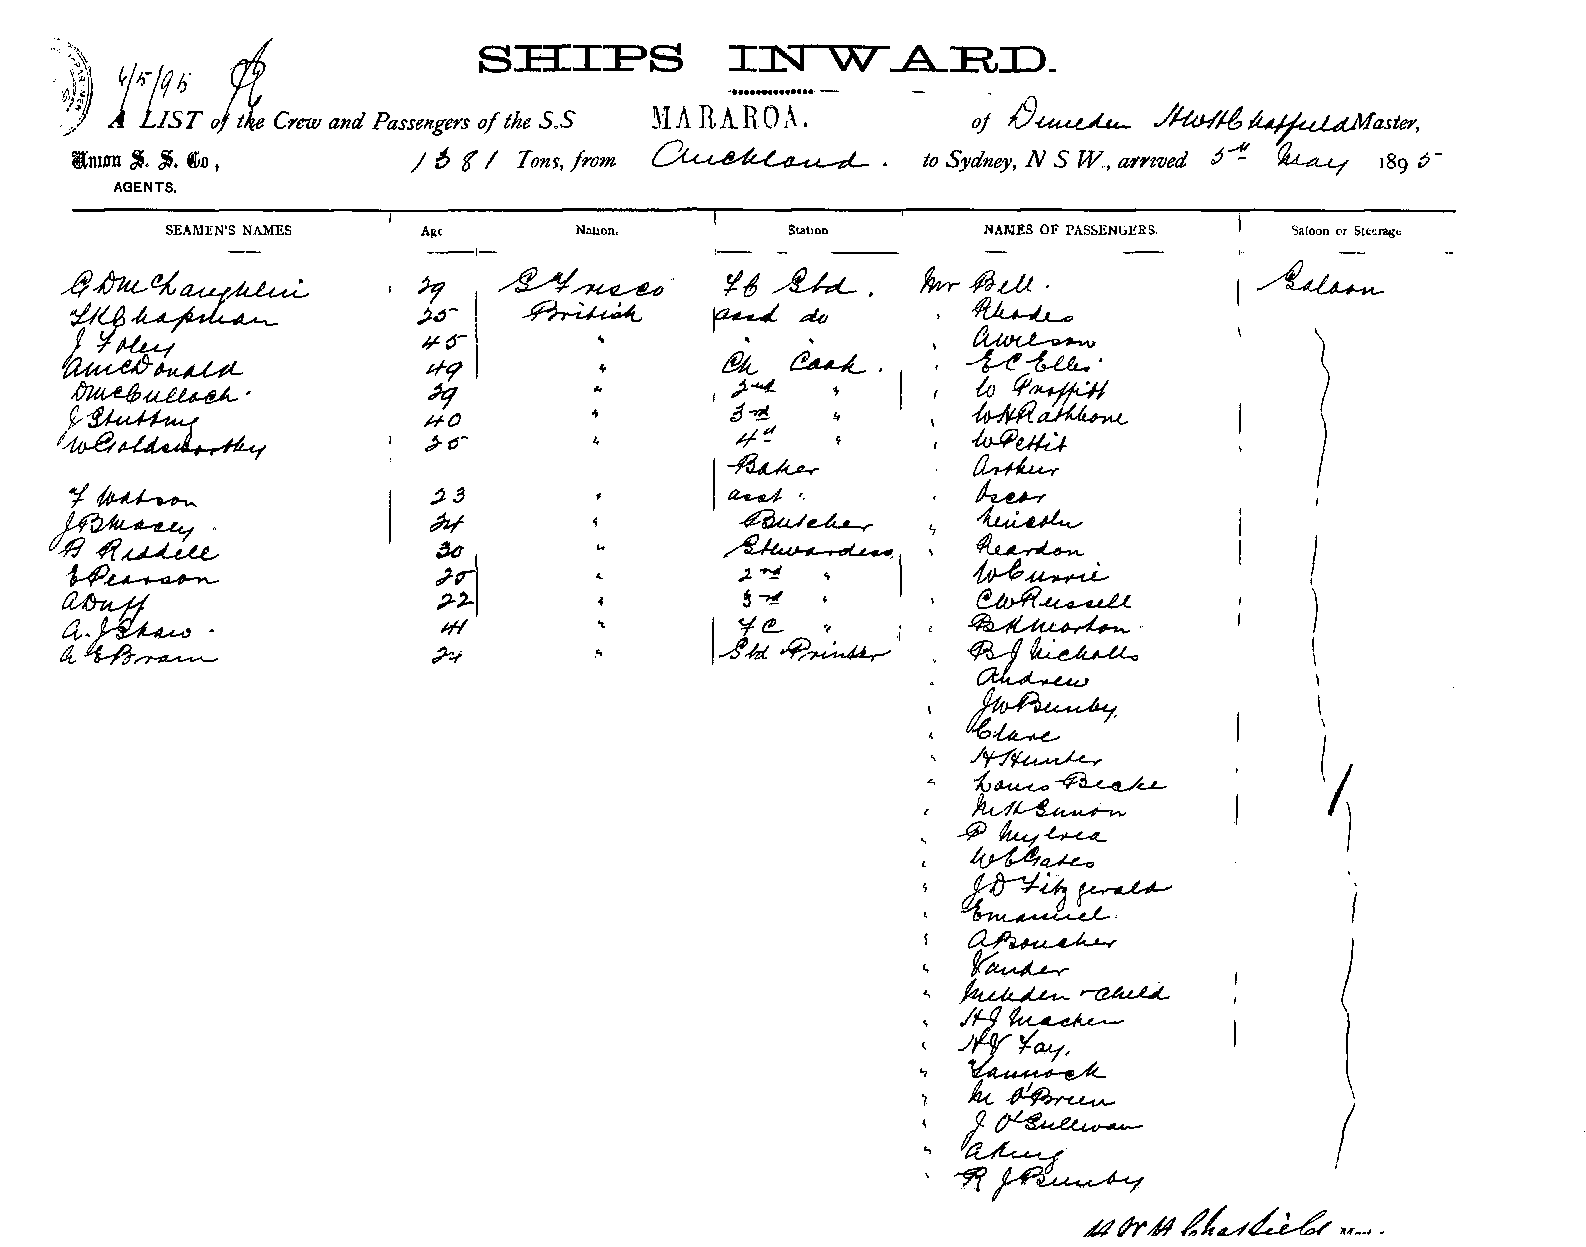 SHIPS INWARD.
6/5/95
A LIST of the Crew and Passengers of the S.S MARAROA. of Dunedin HWH Chatfield Master,
Union S. S. Co, 1381 Tons, from Auckland. to Sydney, N S W., arrived 5th May 1895
AGENTS.
SEAMEN'S NAMES Age Nation. Station NAMES OF PASSENGERS. Saloon or Steerage
G D McLaughlin 29 S Frisco FC Std. Mr Bell. Saloon
F K Chapman 25 British 2nd do " Rhodes
J Foley 45 " " " " A Wilson
A McDonald 49 " Ch Cook. " E C Ellis
D McCulloch. 29 " 2nd " " W Proffitt
J Stutting 40 " 3rd " " W H Rathbone
W Goldsworthy 25 " 4th " " W Pettit
Baker " Arthur
F Watson 23 " asst " " Oscar
J B Macey 24 " Butcher " Lincoln
B Riddell 30 " Stewardess " Reardon
E Pearson 25 " 2nd " " W Currie
A Duff 22 " 3rd " " C W Russell
A. J Shaw. 41 " FC " " B H Morton
A E Brain 24 " Std Printer " B J Nicholls
" Andrew
" J W Bunby
" Clare
" H Hunter
" Louis Beake
" Gunson
" P
" W C Gates
" J D Fitzgerald
" Emanuel.
" A Boucher
" Vander
" & Child
" H J Machen
" H J Fay.
" Yannock
" M O'Brien
" J O'Sullivan
" A King
" R J Bunby
H W H Chatfield